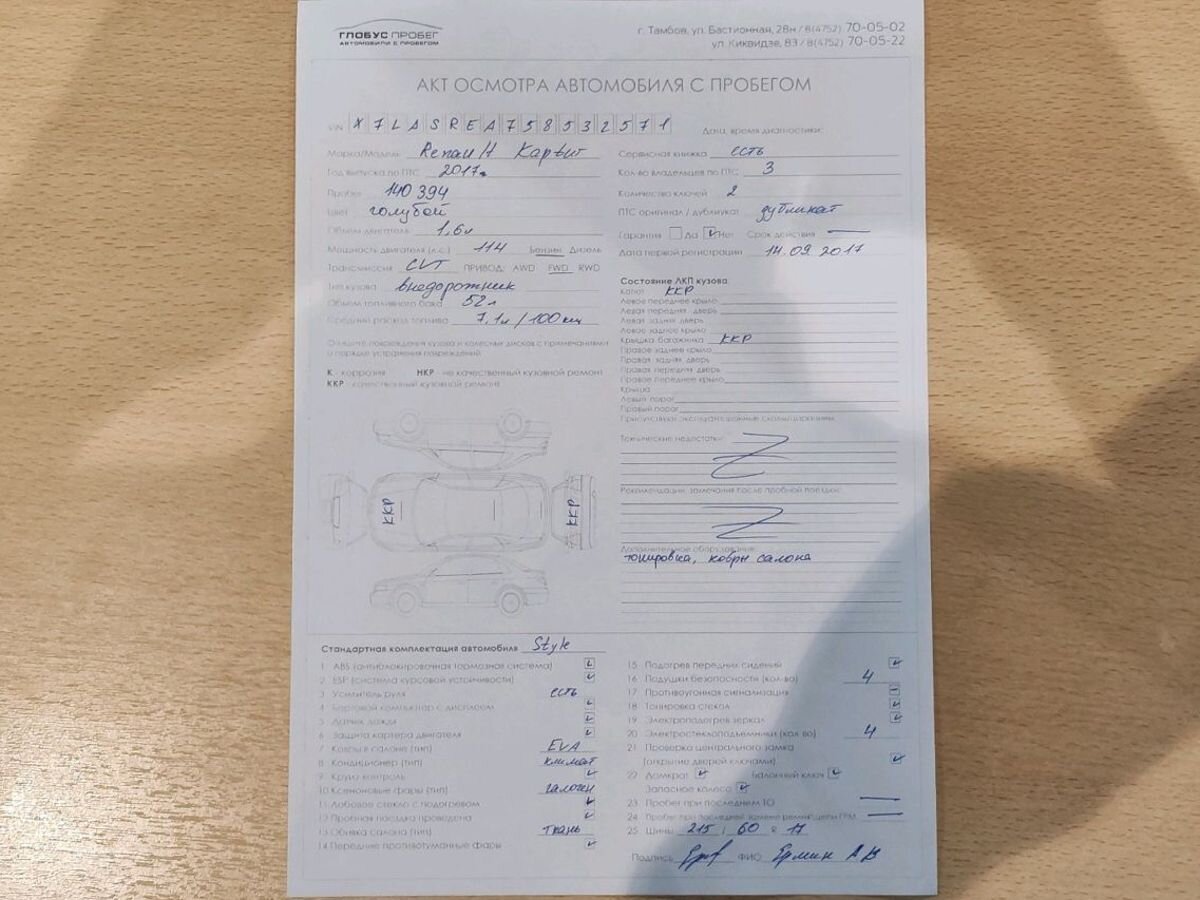 ГЛОБУС ПРОБЕГ
АВТОМОБИЛИ С ПРОБЕГОМ
г. Тамбов, ул. Бастионная, 28н / 8(4752) 70-05-02
ул. Киквидзе, 83 / 8(4752) 70-05-22
АКТ ОСМОТРА АВТОМОБИЛЯ С ПРОБЕГОМ
VIN X7LASREA758532571
Дата, время диагностики:
Марка/Модель Renault Каptur
Год выпуска по ПТС 2017г.
Пробег 140 394
Цвет голубой
Объем двигателя 1,6л
Мощность двигателя (л.с.) 114 Бензин Дизель
Трансмиссия CVT ПРИВОД: AWD FWD RWD
Тип кузова внедорожник
Объем топливного бака 52л
Средний расход топлива 7,1л/100км
Опишите повреждения кузова и колесных дисков с примечаниями
и порядке устранения повреждений
К - коррозия НКР - не качественный кузовной ремонт
ККР - качественный кузовной ремонт
ККР
ККР
Сервисная книжка есть
Кол-во владельцев по ПТС 3
Количество ключей 2
ПТС оригинал / дубликат дубликат
Гарантия Да Нет Срок действия —
Дата первой регистрации 14.09.2017
Состояние ЛКП кузова
Капот ККР
Левое переднее крыло
Левая передняя дверь
Левая задняя дверь
Левое заднее крыло
Крышка багажника ККР
Правое заднее крыло
Правая задняя дверь
Правая передняя дверь
Правое переднее крыло
Крыша
Левый порог
Правый порог
Присутствуют эксплуатационные сколы/царапины
Технические недостатки:
Рекомендации, замечания после пробной поездки:
Дополнительное оборудование:
тонировка, ковры салона
Стандартная комплектация автомобиля Style
1 ABS (антиблокировочная тормозная система)
2 ESP (система курсовой устойчивости)
3 Усилитель руля есть
4 Бортовой компьютер с дисплеем
5 Датчик дождя
6 Защита картера двигателя
7 Ковры в салоне (тип) EVA
8 Кондиционер (тип) климат
9 Круиз контроль
10 Ксеноновые фары (тип) галоген
11 Лобовое стекло с подогревом
12 Пробная поездка проведена
13 Обивка салона (тип) ткань
14 Передние противотуманные фары
15 Подогрев передних сидений
16 Подушки безопасности (кол-во) 4
17 Противоугонная сигнализация
18 Тонировка стекол
19 Электроподогрев зеркал
20 Электростеклоподъемники (кол во) 4
21 Проверка центрального замка
(открытие дверей ключами)
22 Домкрат Балонный ключ
Запасное колесо
23 Пробег при последнем ТО —
24 Пробег при последней замене ремня/цепи ГРМ —
25 Шины 215 / 60 R 17
Подпись ФИО Ермин А В